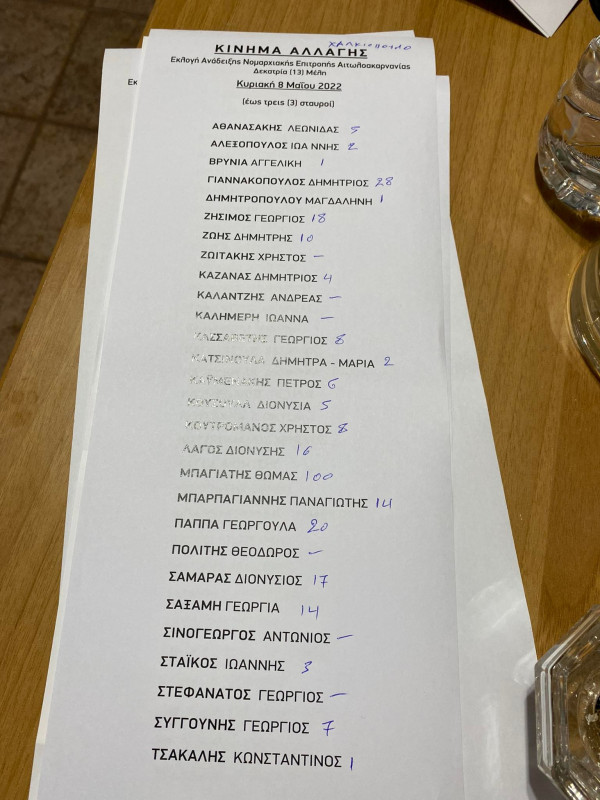 ΧΑΛΚΙΟΠΟΥΛΟ
ΚΙΝΗΜΑ ΑΛΛΑΓΗΣ
Εκλογή Ανάδειξης Νομαρχιακής Επιτροπής Αιτωλοακαρνανίας
Δεκατρία (13) Μέλη
Κυριακή 8 Μαΐου 2022
(έως τρεις (3) σταυροί)
Εκ
ΑΘΑΝΑΣΑΚΗΣ ΛΕΩΝΙΔΑΣ 5
ΑΛΕΞΟΠΟΥΛΟΣ ΙΩΑ ΝΝΗΣ 2
ΒΡΥΝΙΑ ΑΓΓΕΛΙΚΗ 1
ΓΙΑΝΝΑΚΟΠΟΥΛΟΣ ΔΗΜΗΤΡΙΟΣ 28
ΔΗΜΗΤΡΟΠΟΥΛΟΥ ΜΑΓΔΑΛΗΝΗ 1
ΖΗΣΙΜΟΣ ΓΕΩΡΓΙΟΣ 18
ΖΩΗΣ ΔΗΜΗΤΡΗΣ 10
ΖΩΙΤΑΚΗΣ ΧΡΗΣΤΟΣ —
ΚΑΖΑΝΑΣ ΔΗΜΗΤΡΙΟΣ 4
ΚΑΛΑΝΤΖΗΣ ΑΝΔΡΕΑΣ —
ΚΑΛΗΜΕΡΗ ΙΩΑΝΝΑ —
ΓΕΩΡΓΙΟΣ 8
ΔΗΜΗΤΡΑ - ΜΑΡΙΑ 2
ΠΕΤΡΟΣ 6
ΔΙΟΝΥΣΙΑ 5
ΚΟΥΤΡΟΜΑΝΟΣ ΧΡΗΣΤΟΣ 8
ΛΑΓΟΣ ΔΙΟΝΥΣΗΣ 16
ΜΠΑΓΙΑΤΗΣ ΘΩΜΑΣ 100
ΜΠΑΡΠΑΓΙΑΝΝΗΣ ΠΑΝΑΓΙΩΤΗΣ 14
ΠΑΠΠΑ ΓΕΩΡΓΟΥΛΑ 20
ΠΟΛΙΤΗΣ ΘΕΟΔΩΡΟΣ —
ΣΑΜΑΡΑΣ ΔΙΟΝΥΣΙΟΣ 17
ΣΑΞΑΜΗ ΓΕΩΡΓΙΑ 14
ΣΙΝΟΓΕΩΡΓΟΣ ΑΝΤΩΝΙΟΣ —
ΣΤΑΪΚΟΣ ΙΩΑΝΝΗΣ 3
ΣΤΕΦΑΝΑΤΟΣ ΓΕΩΡΓΙΟΣ —
ΣΥΓΓΟΥΝΗΣ ΓΕΩΡΓΙΟΣ 7
ΤΣΑΚΑΛΗΣ ΚΩΝΣΤΑΝΤΙΝΟΣ 1